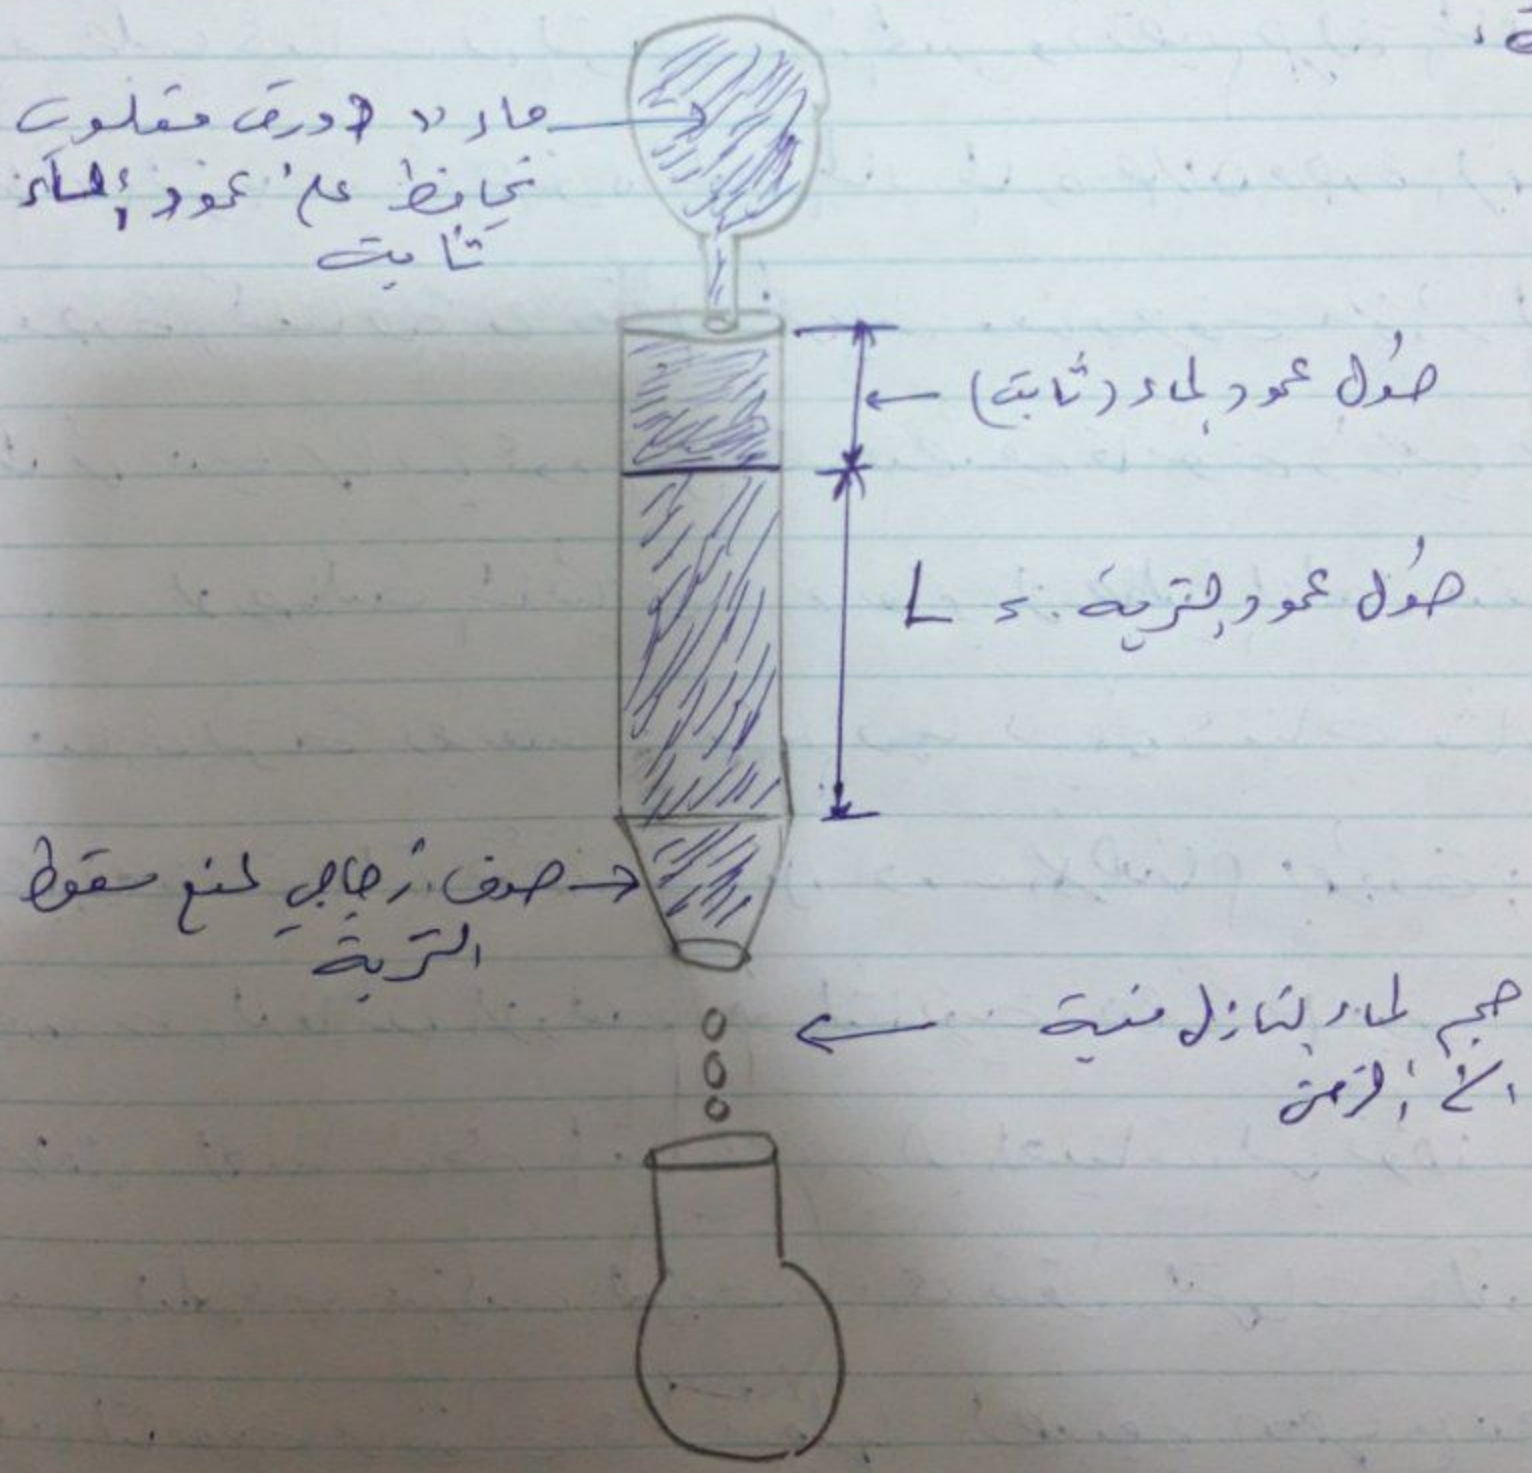 ماء " دورق مقلوب
يحافظ على عمود الماء
ثابت
طول عمود الماء (ثابت)
طول عمود التربة = L
صوف زجاجي لمنع سقوط
التربة
حجم الماء النازل منه
الزمن